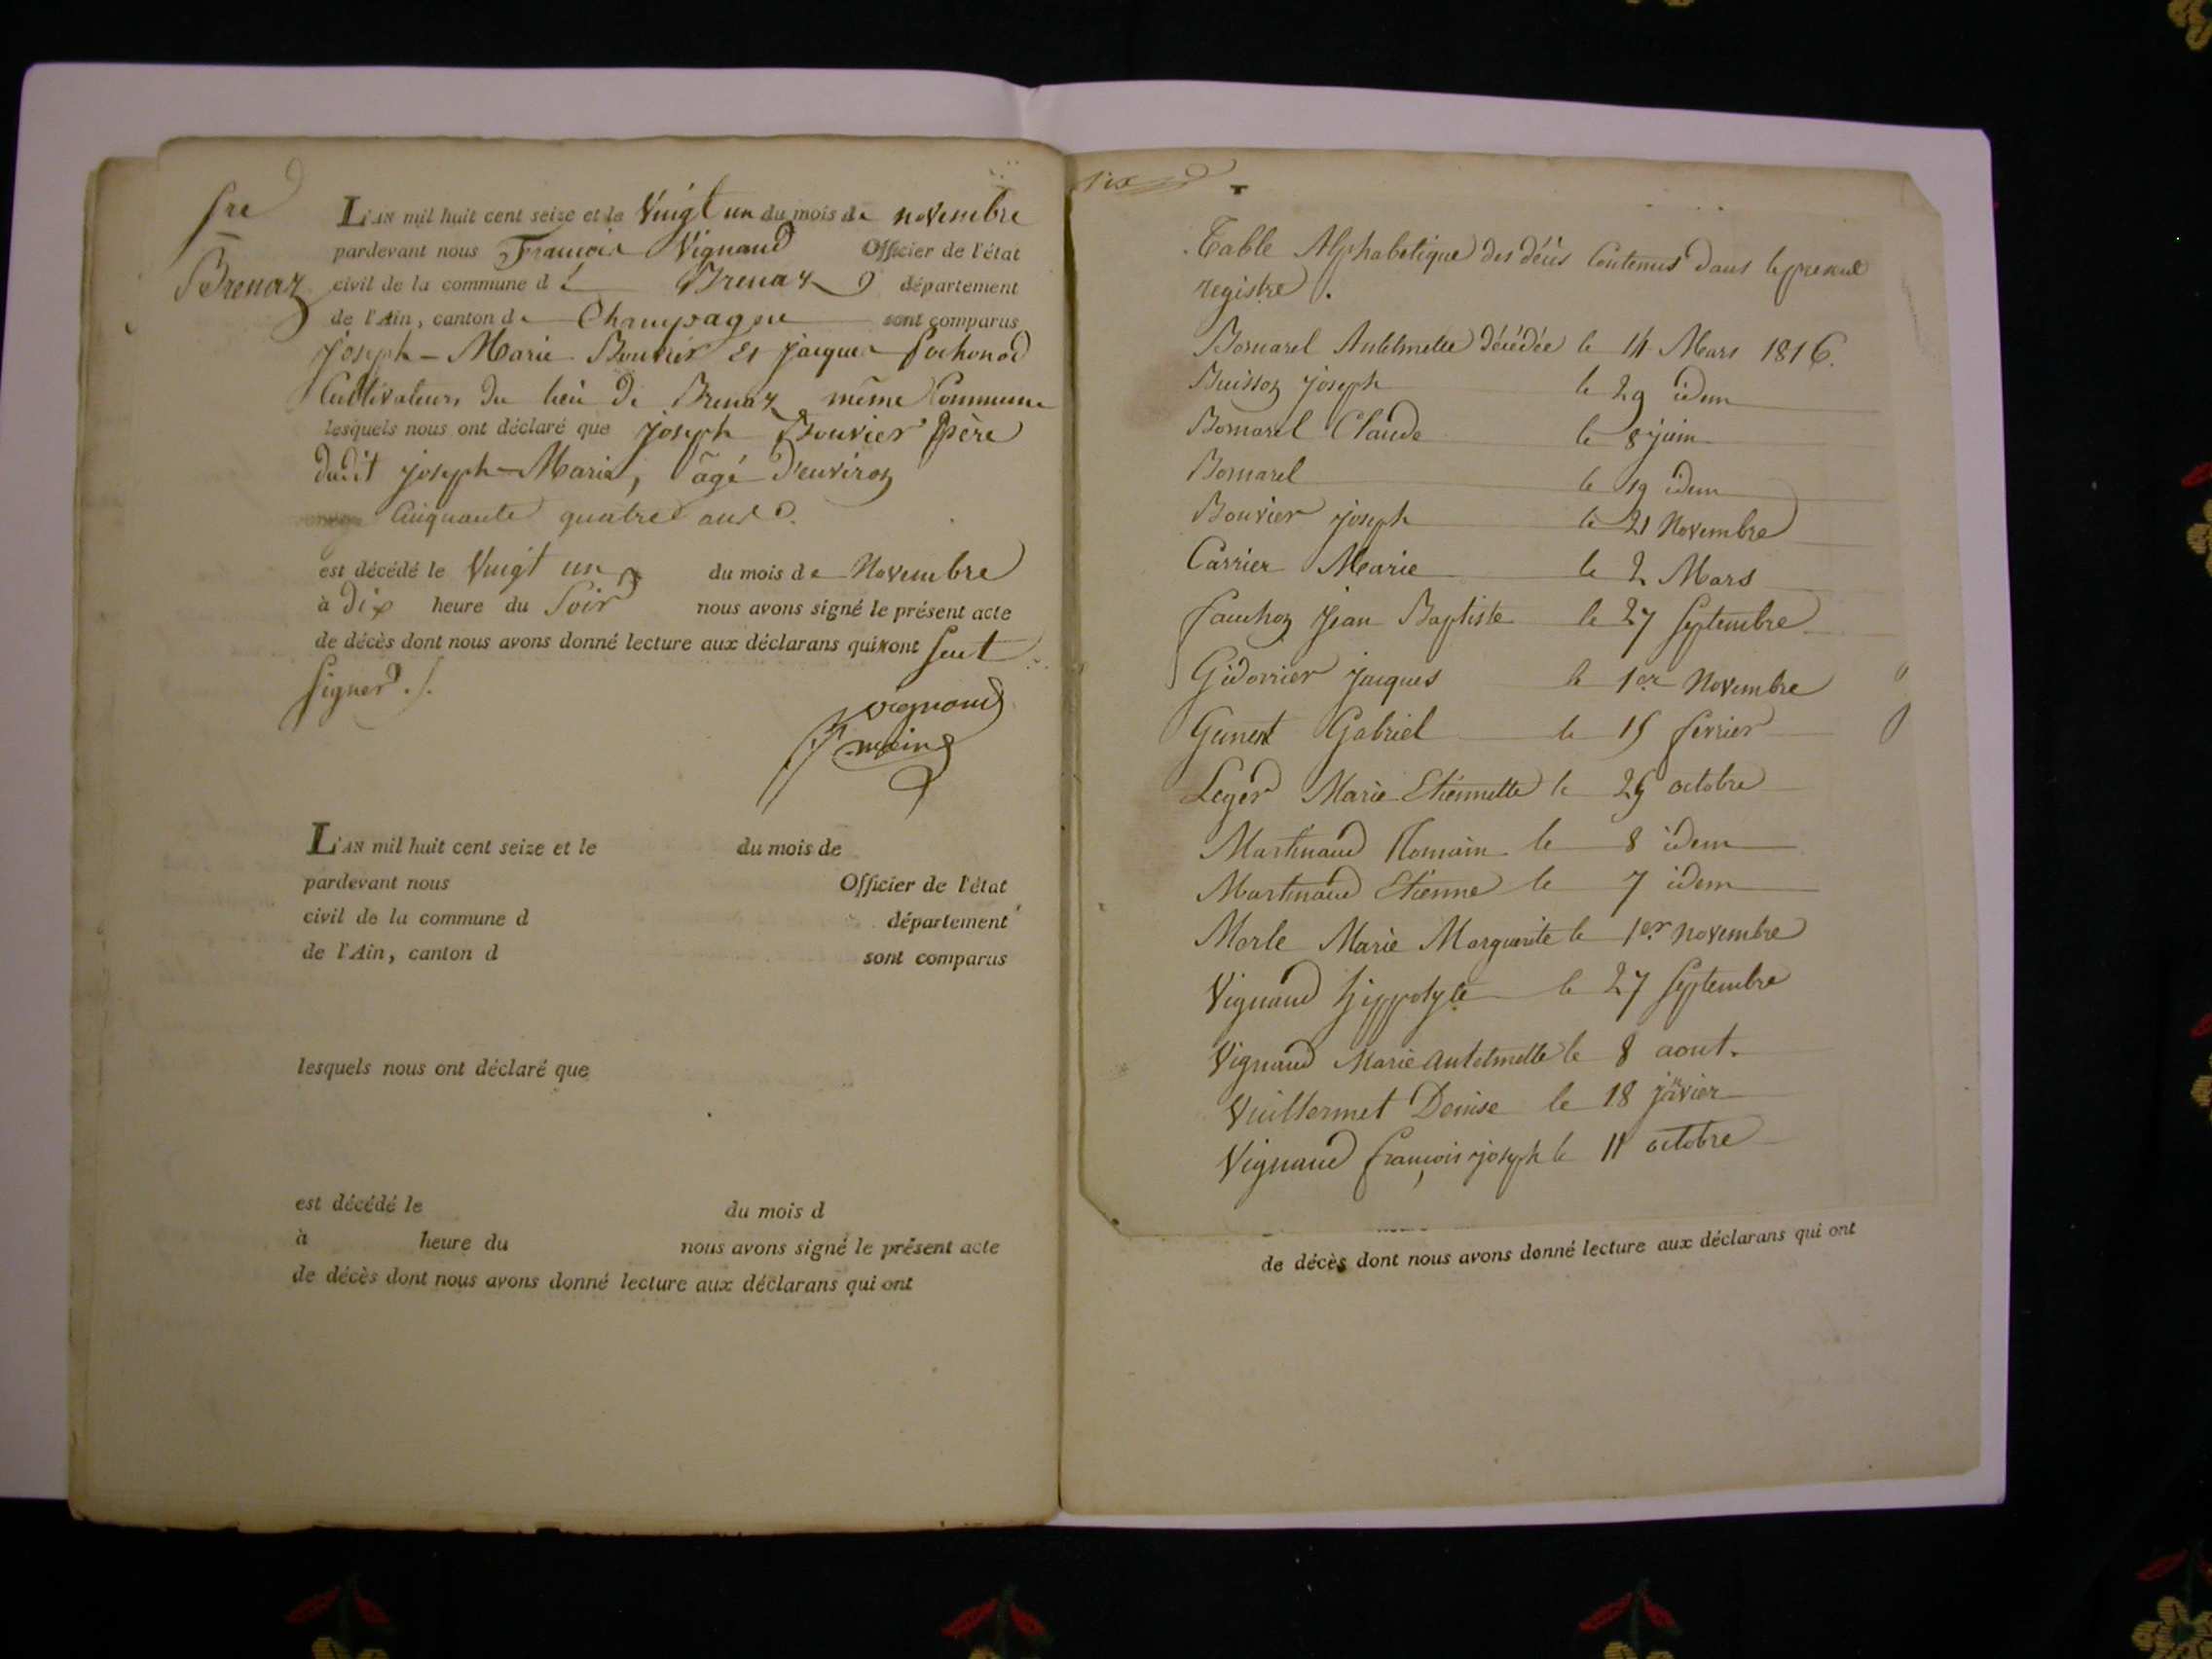 Sre
Brenaz
L'AN mil huit cent seize et le Vingt un du mois de novembre
pardevant nous François Vignaud Officier de l'état
civil de la commune d Brenaz département
de l'Ain, canton de Champagne sont comparus
joseph-Marie Bouvier Et jacques fochonod
Cultivateurs du lieu de Brenaz même Commune
lesquels nous ont déclaré que joseph Bouvier Père
dudit joseph-Marie, âgé d'environ
Cinquante quatre ans
est décédé le Vingt un du mois de Novembre
à dix heure du Soir nous avons signé le présent acte
de décès dont nous avons donné lecture aux déclarans qui ont
Signer ./.
vignaud
L'AN mil huit cent seize et le du mois de
pardevant nous Officier de l'état
civil de la commune d département
de l'Ain, canton d sont comparus
lesquels nous ont déclaré que
est décédé le du mois d
à heure du nous avons signé le présent acte
de décès dont nous avons donné lecture aux déclarans qui ont
six
Table Alphabetique des décès Contenus dans le present
registre .
Bornarel Antelmette décédée le 14 Mars 1816.
Buisson joseph le 29 idem
Bornarel Claude le 8 juin
Bornarel le 19 idem
Bouvier joseph le 21 Novembre
Carrier Marie le 2 Mars
fauchon jean Baptiste le 27 Septembre
Gidorrier jacques le 1er Novembre
Genest Gabriel le 15 fevrier
Leger Marie Etiennette le 25 octobre
Martinaud Romain le 8 idem
Martinaud Etienne le 7 idem
Morle Marie Marguerite le 1er novembre
Vignaud hippolyte le 27 Septembre
Vignaud Marie antelmette le 8 aout.
Vuillermet Denise le 18 janvier
Vignaud françois joseph le 11 octobre
de décès dont nous avons donné lecture aux déclarans qui ont